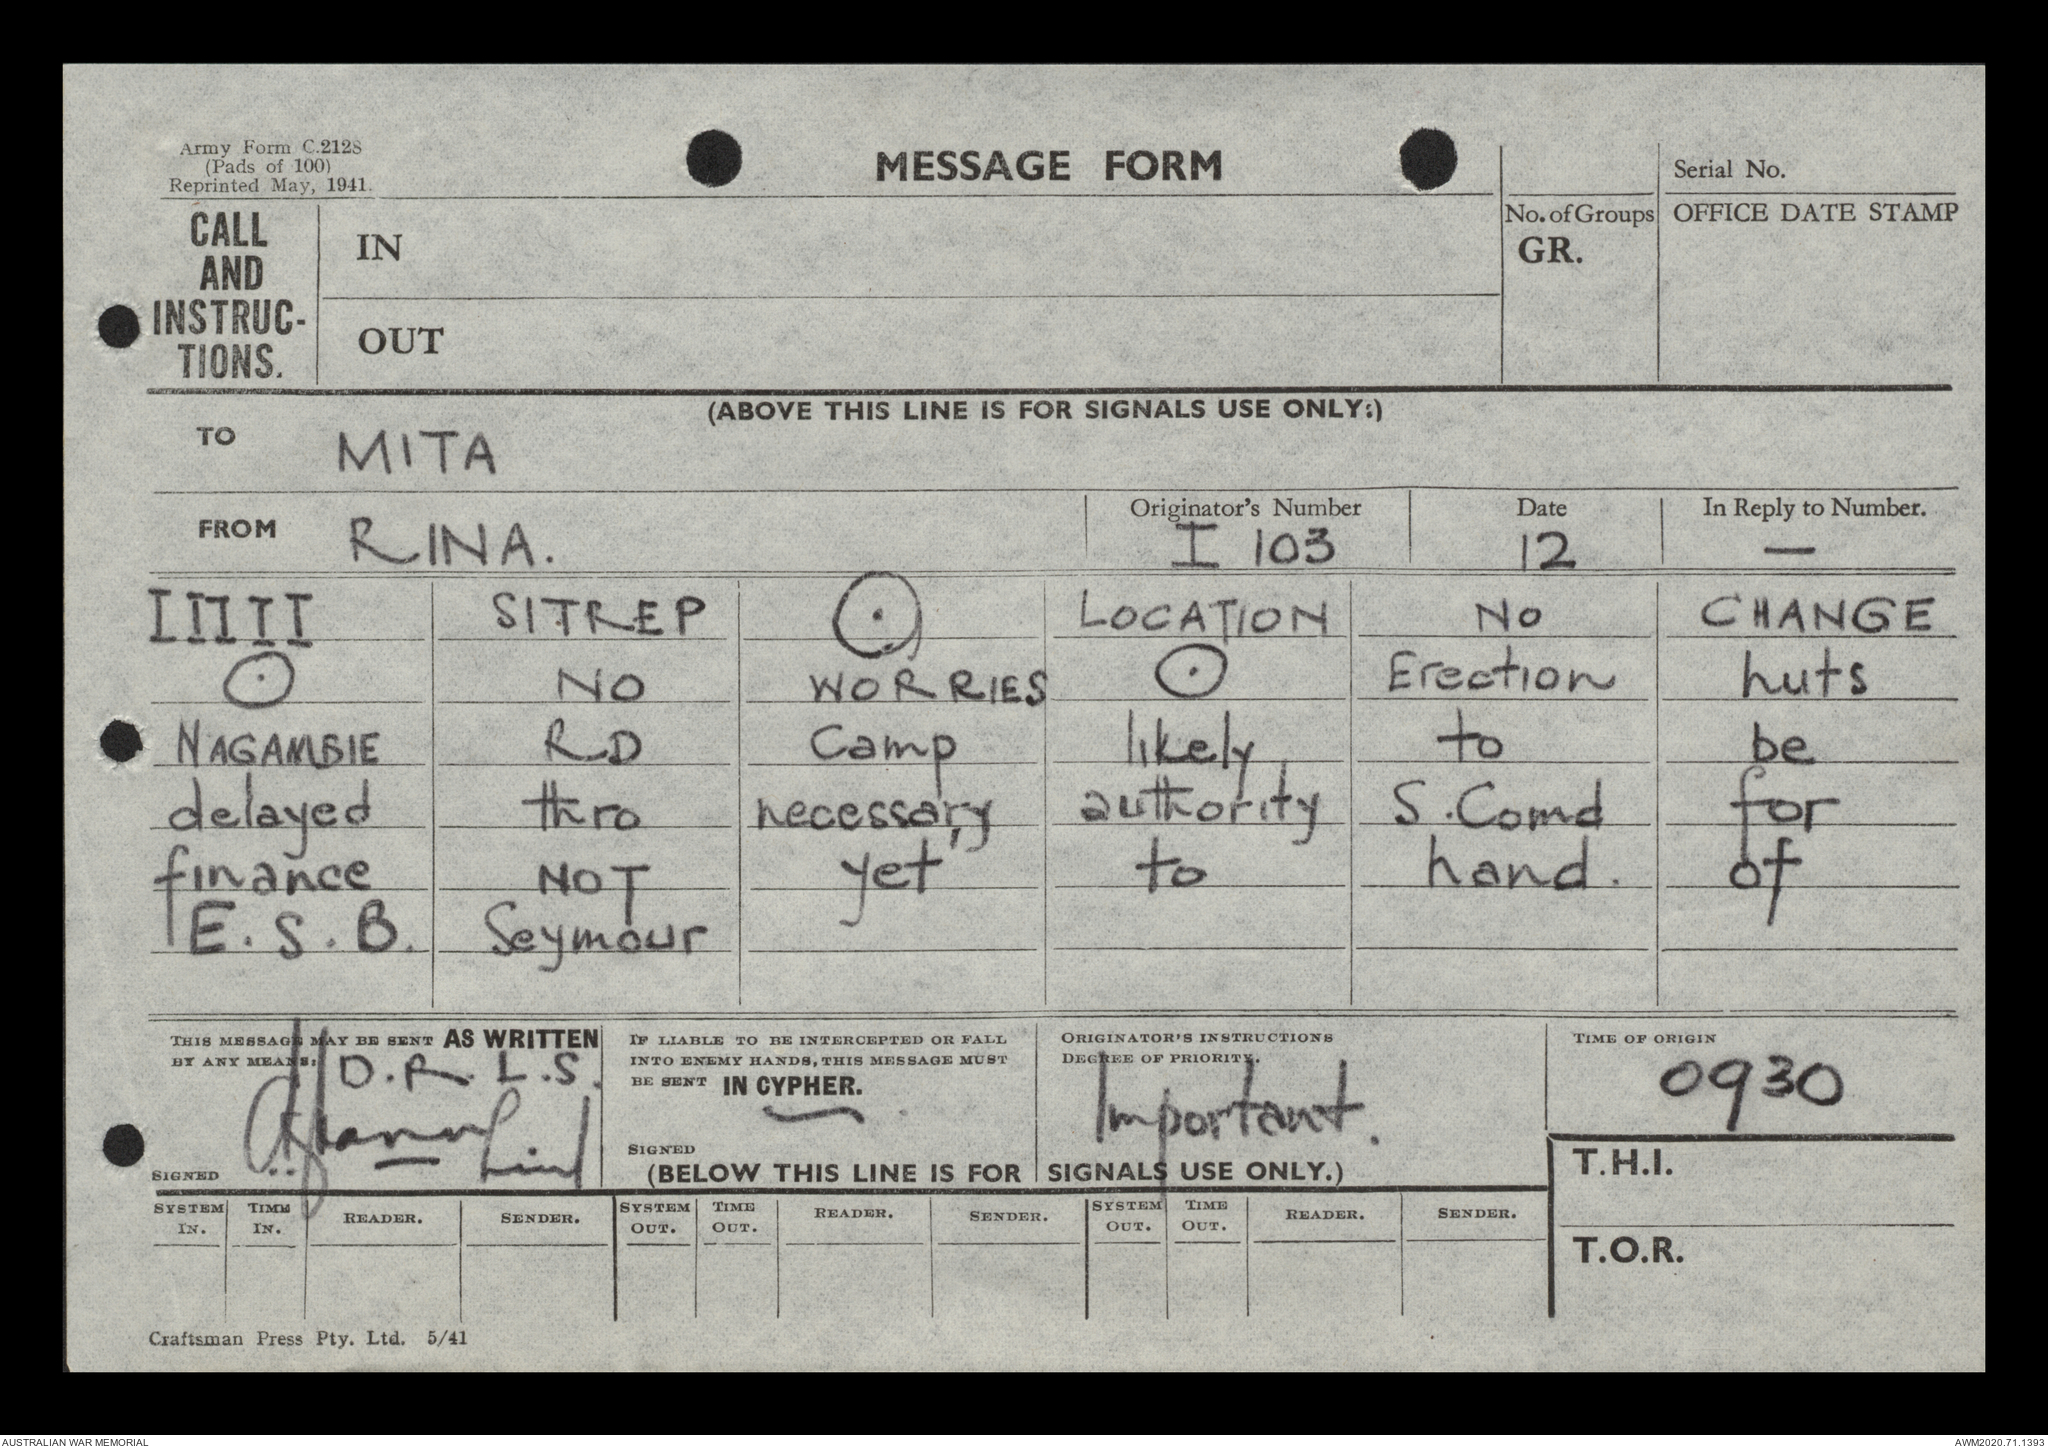 Army Form C.2128
(Pads of 100)
Reprinted May, 1941.
MESSAGE FORM
Serial No.
CALL AND INSTRUC-TIONS.
IN
OUT
No. of Groups
GR.
OFFICE DATE STAMP
(ABOVE THIS LINE IS FOR SIGNALS USE ONLY:)
TO MITA
FROM RINA.
Originator's Number I 103
Date 12
In Reply to Number. —
IIIII SITREP ⊙ LOCATION NO CHANGE
⊙ NO WORRIES ⊙ Erection huts
NAGAMBIE RD Camp likely to be
delayed thro necessary authority S.Comd for
finance NOT yet to hand. of
E.S.B. Seymour
THIS MESSAGE MAY BE SENT AS WRITTEN
BY ANY MEANS:
D.R.L.S.
SIGNED
IF LIABLE TO BE INTERCEPTED OR FALL
INTO ENEMY HANDS, THIS MESSAGE MUST
BE SENT IN CYPHER.
SIGNED
ORIGINATOR'S INSTRUCTIONS
DEGREE OF PRIORITY.
Important.
TIME OF ORIGIN
0930
(BELOW THIS LINE IS FOR SIGNALS USE ONLY.)
T.H.I.
SYSTEM IN. TIME IN. READER. SENDER. SYSTEM OUT. TIME OUT. READER. SENDER. SYSTEM OUT. TIME OUT. READER. SENDER.
T.O.R.
Craftsman Press Pty. Ltd. 5/41
AUSTRALIAN WAR MEMORIAL
AWM2020.71.1393